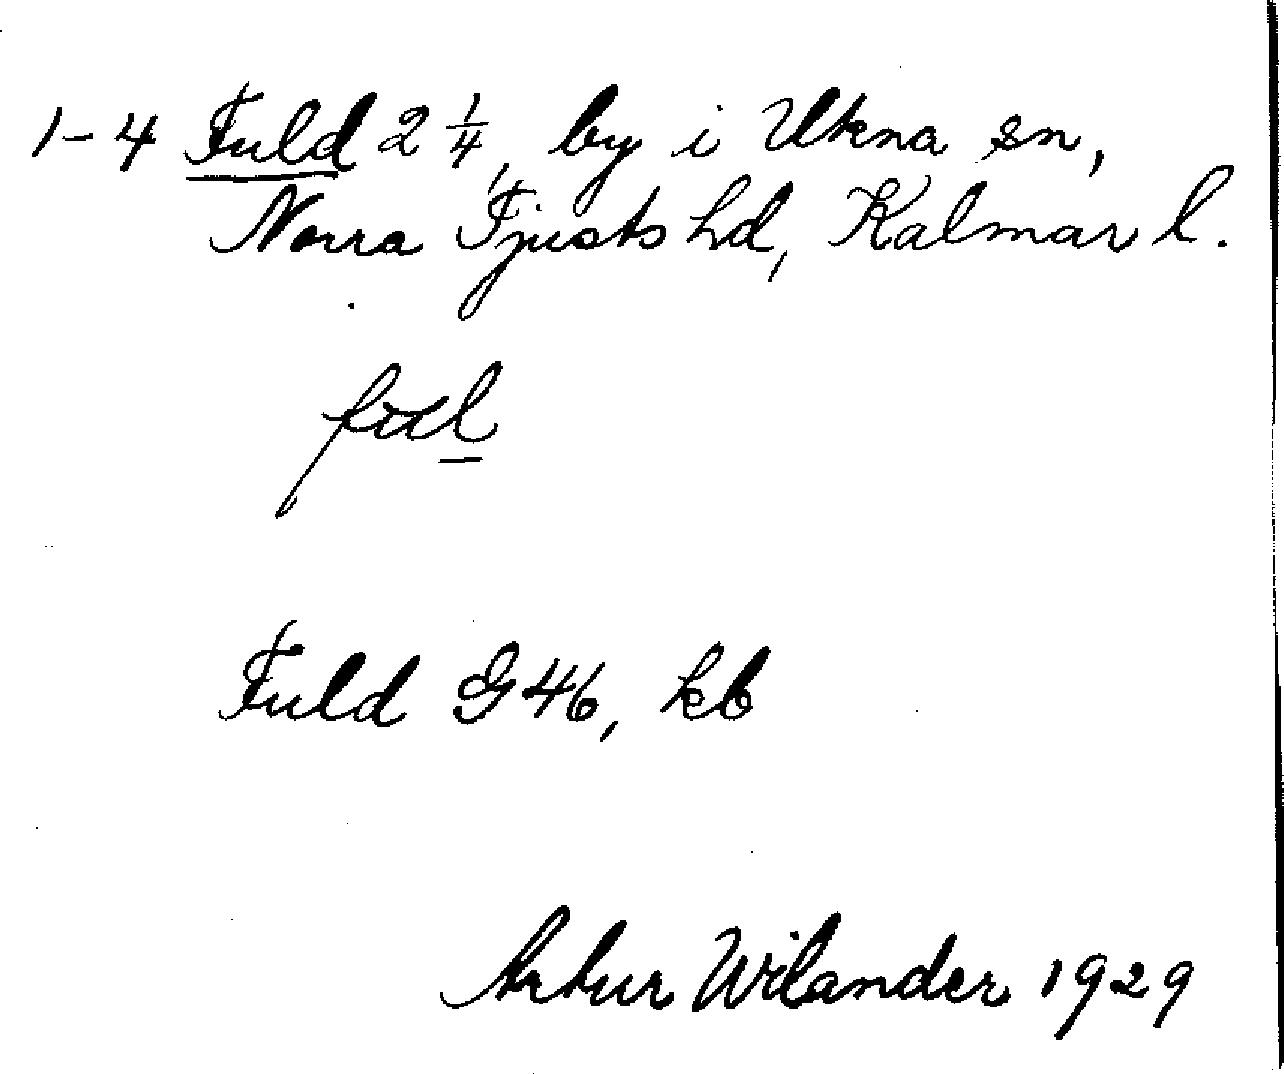 1-4 Fuld 2 1/4, by i Ukna sn,
Norra Tjusts hd, Kalmar l.
ful
Fuld G46, kb
Artur Wilander 1929